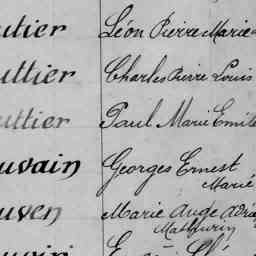 utier Léon Pierre Marie
uttier Charles Pierre Louis
uttier Paul Marie Emile
uvain Georges Ernest
Marie
uven Marie Ange
Mathurin